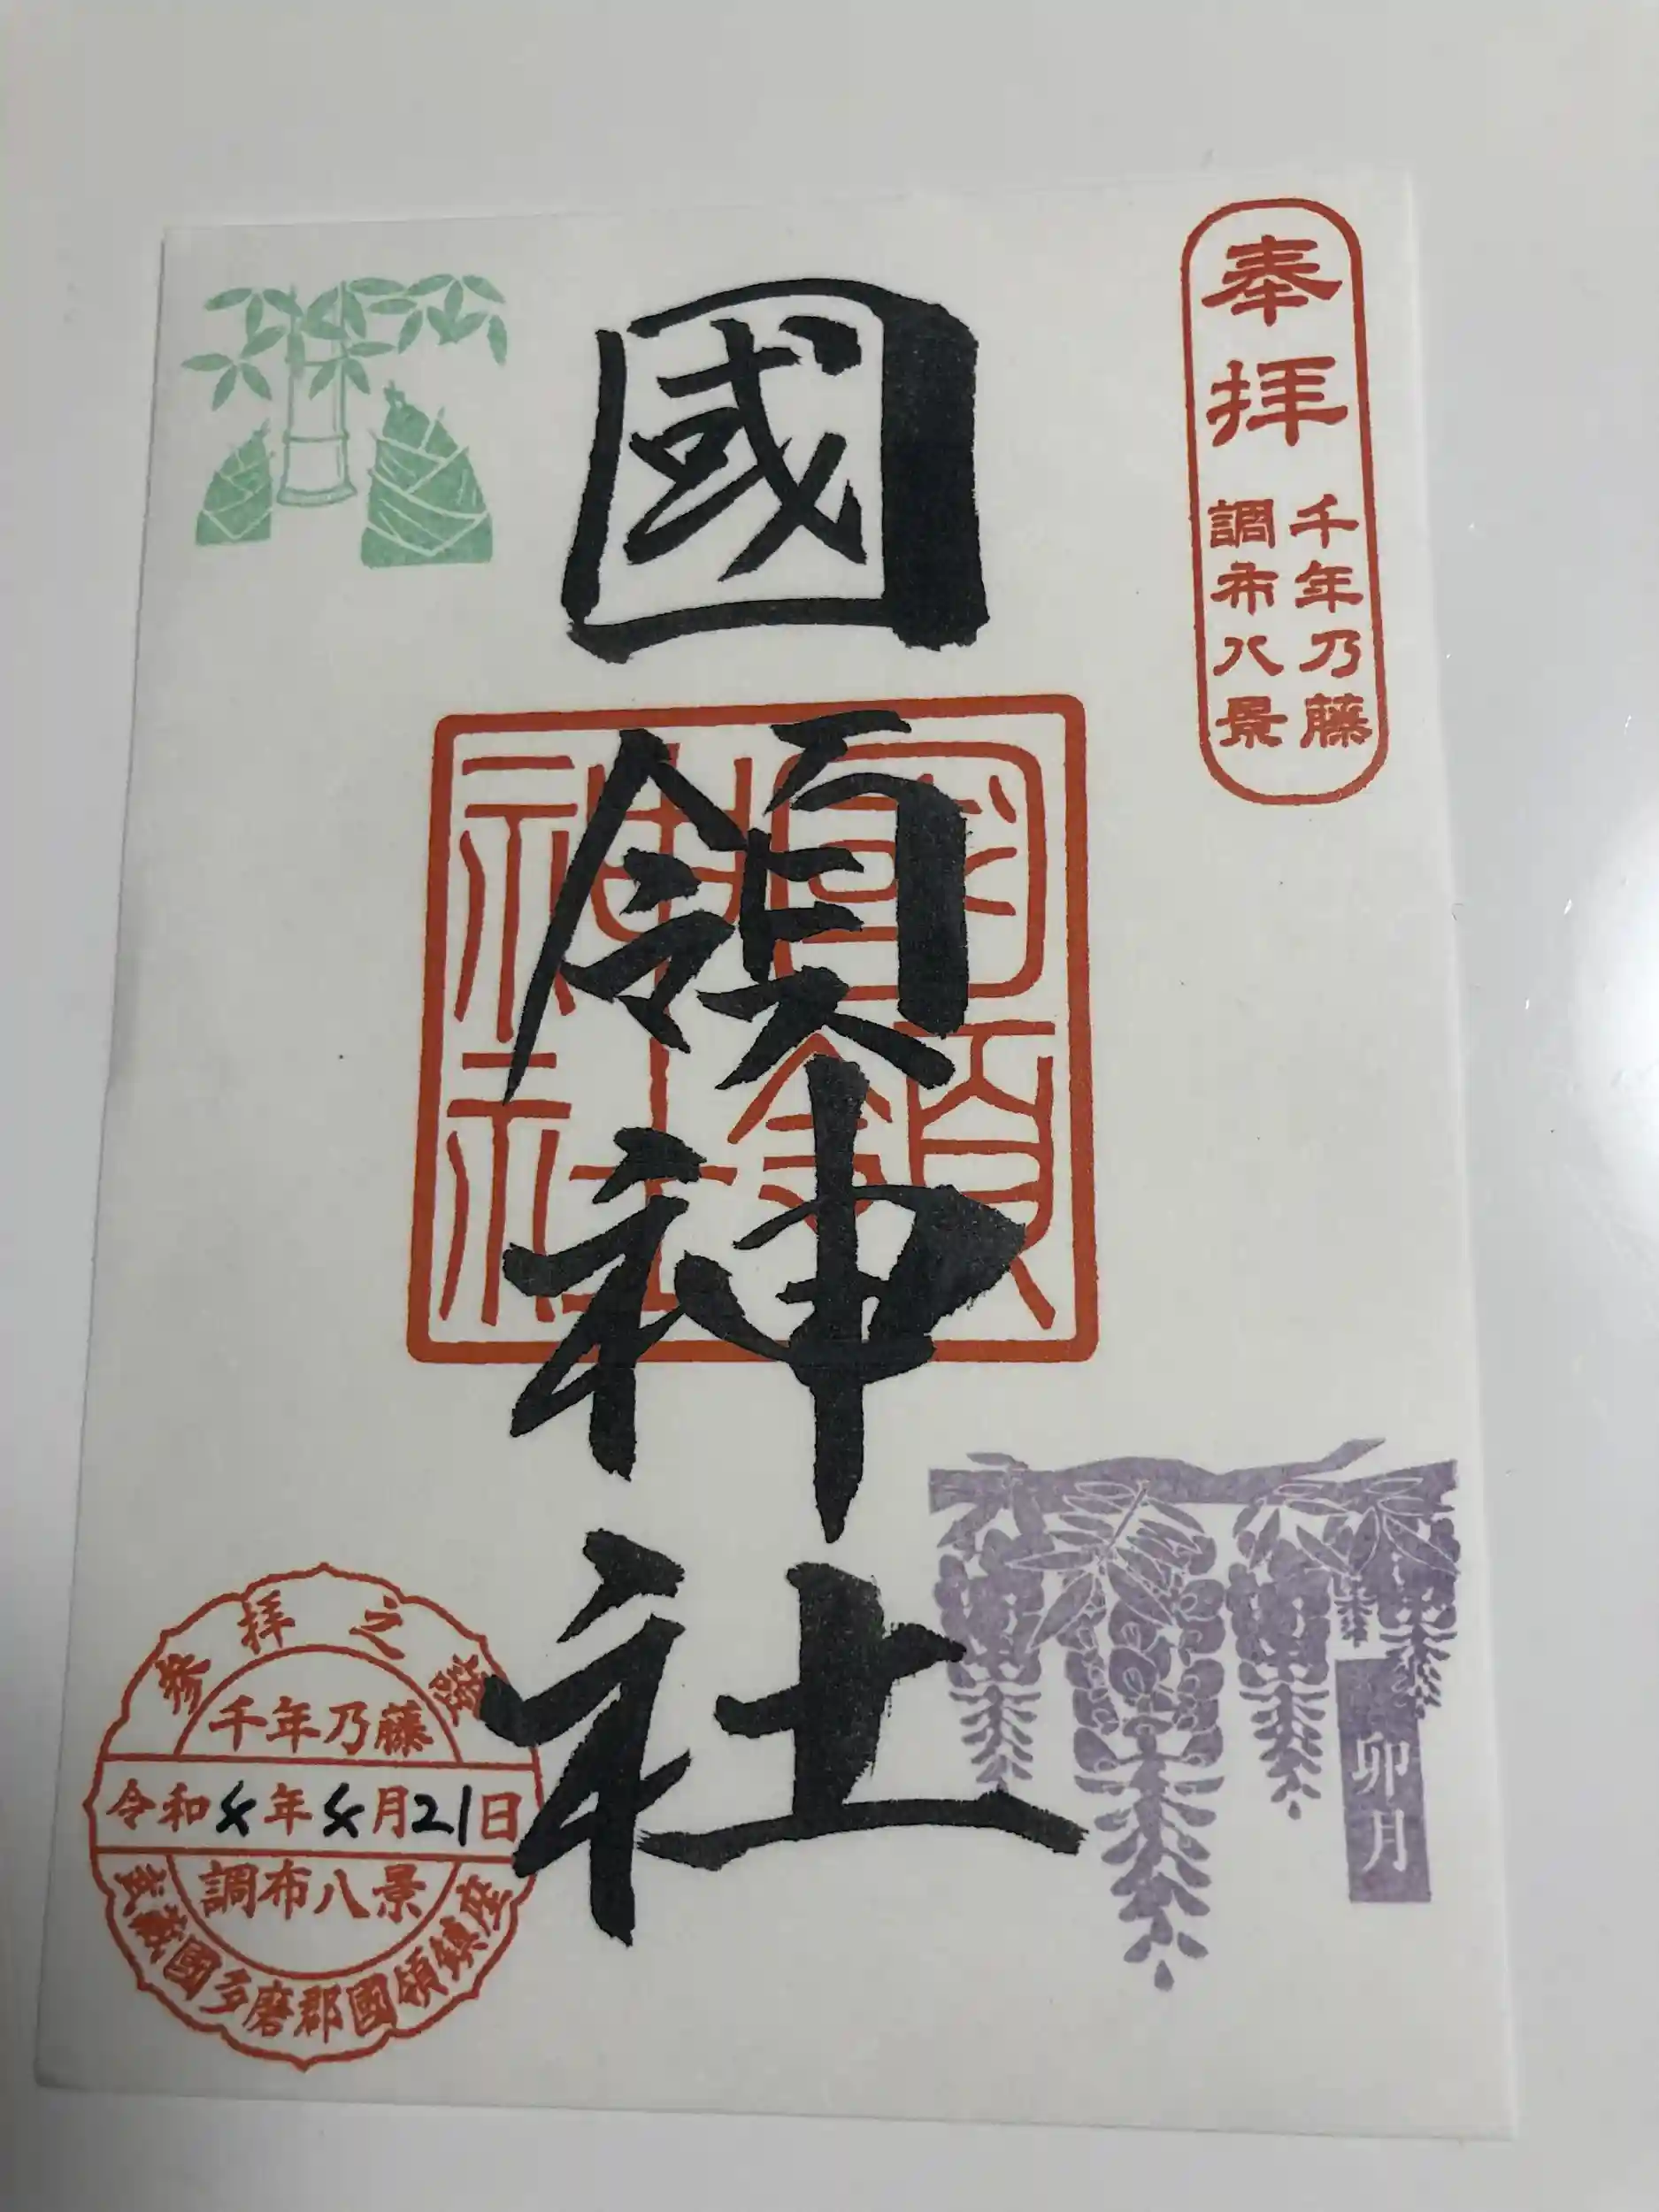 奉拝
千年乃藤
調布八景
國領神社
國領
神社
卯月
参拝之證
千年乃藤
令和4年4月21日
調布八景
武蔵國多磨郡國領鎮座